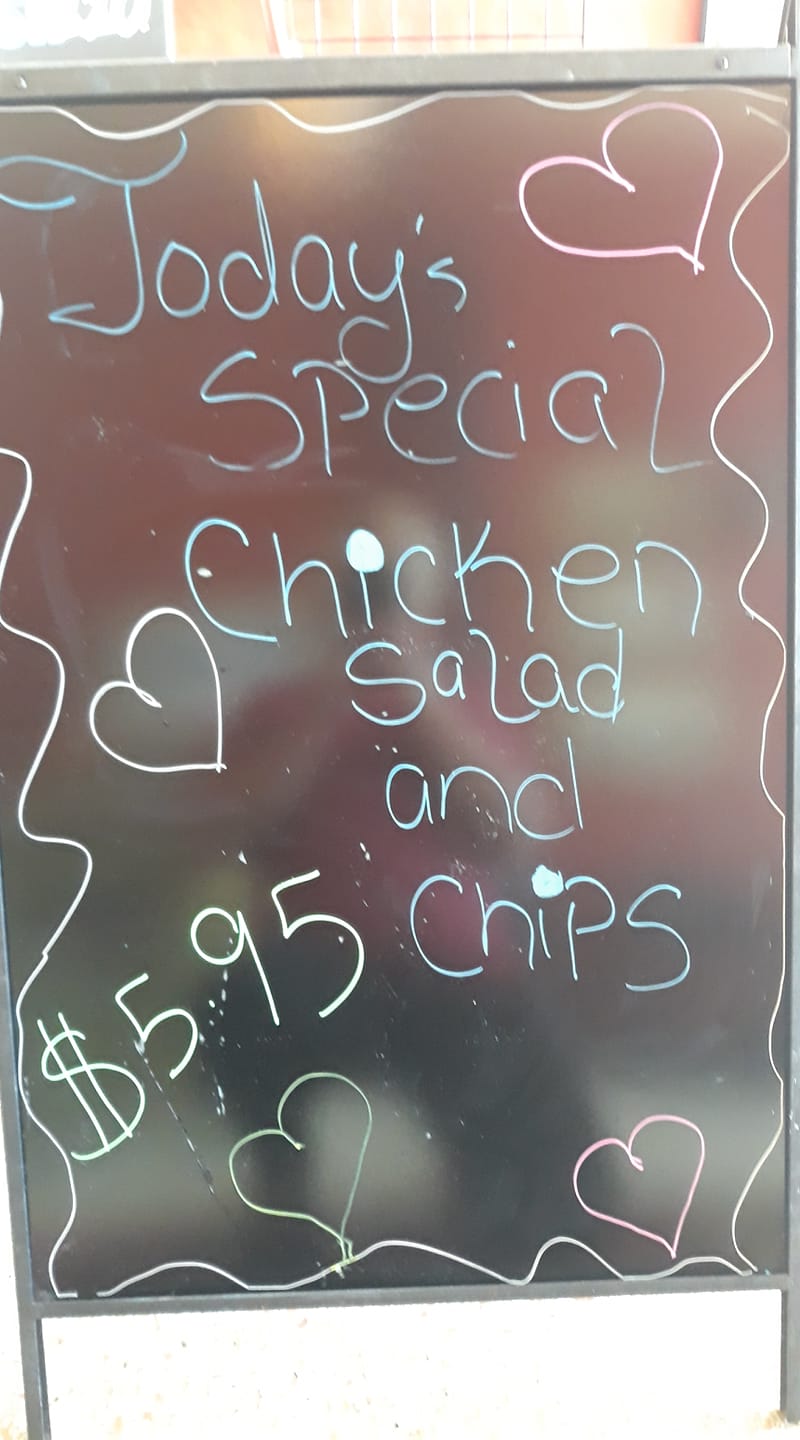 Today's
Special
Chicken
Salad
and
Chips
$5.95